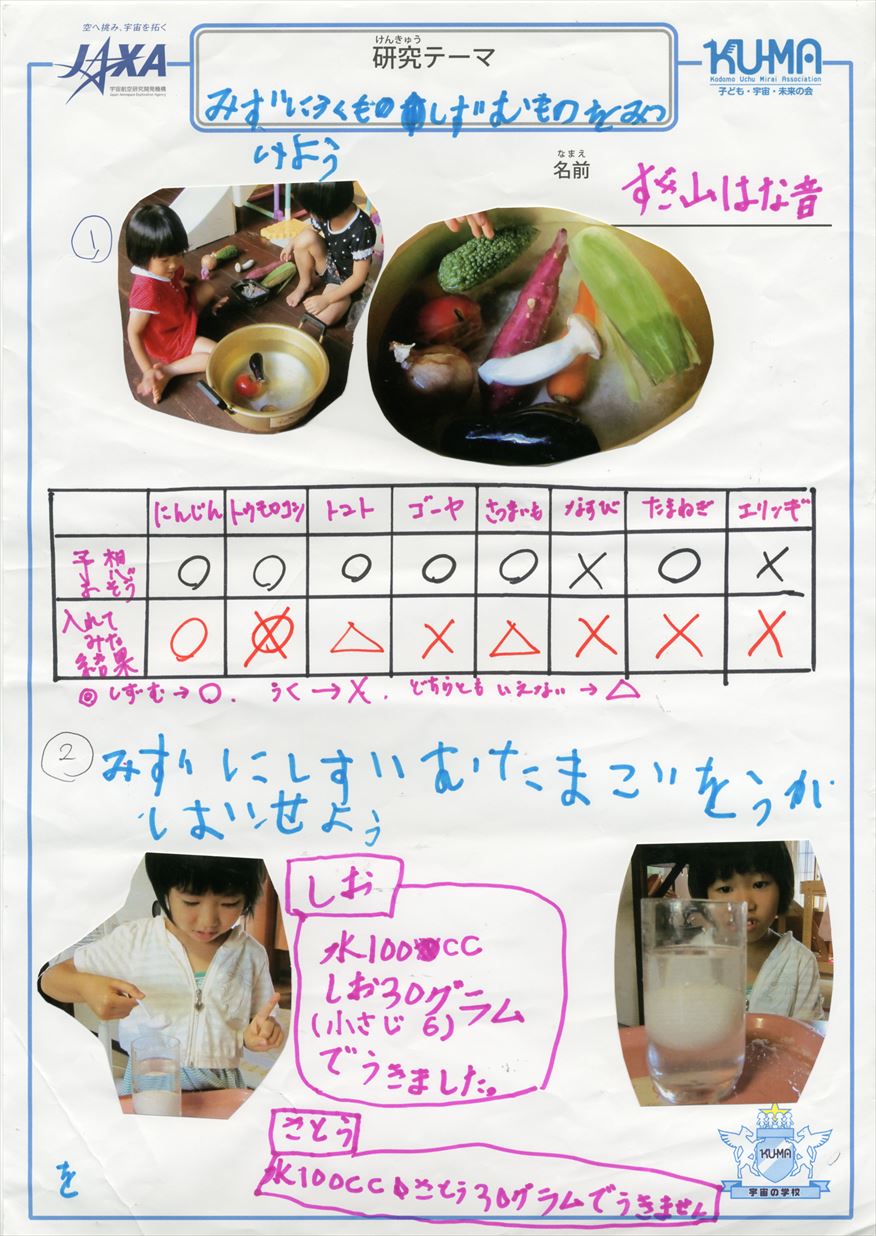 空へ挑み、宇宙を拓く
JAXA
宇宙航空研究開発機構
Japan Aerospace Exploration Agency
けんきゅう
研究テーマ
KU-MA
Kodomo Uchu Mirai Association
子ども・宇宙・未来の会
みずにうくものしずむものをみつ
けよう
なまえ
名前
すぎ山はな音
1
にんじん トウモロコシ トマト ゴーヤ さつまいも なすび たまねぎ エリンギ
予想
よそう
○ ○ ○ ○ ○ × ○ ×
入れて
みた
結果
○ × △ × △ × × ×
◎しずむ→○. うく→×. どちらともいえない→△
2
みずにしずむたまごをうか
しませよう
しお
水100cc
しお30グラム
(小さじ6)
でうきました。
さとう
水100ccさとう30グラムでうきません
を
KU-MA
宇宙の学校